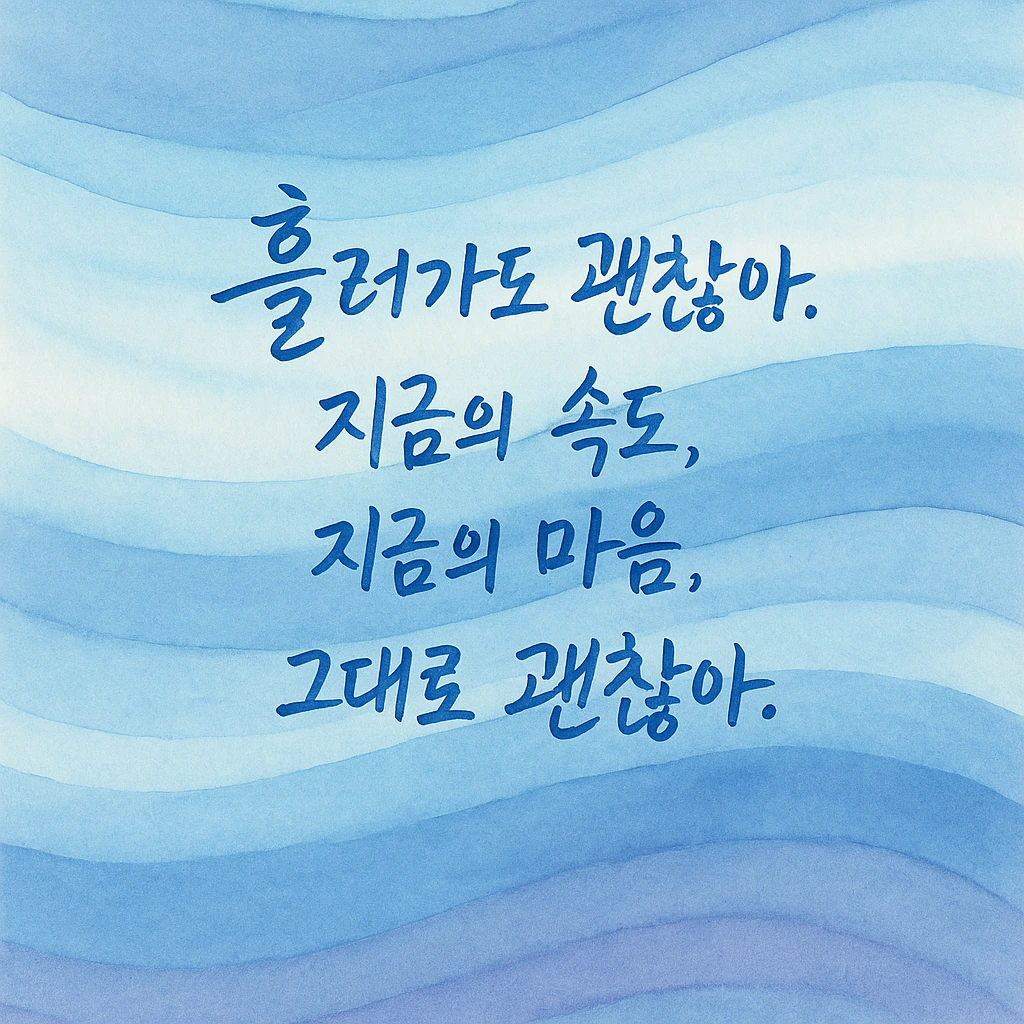 흘러가도 괜찮아.
지금의 속도,
지금의 마음,
그대로 괜찮아.